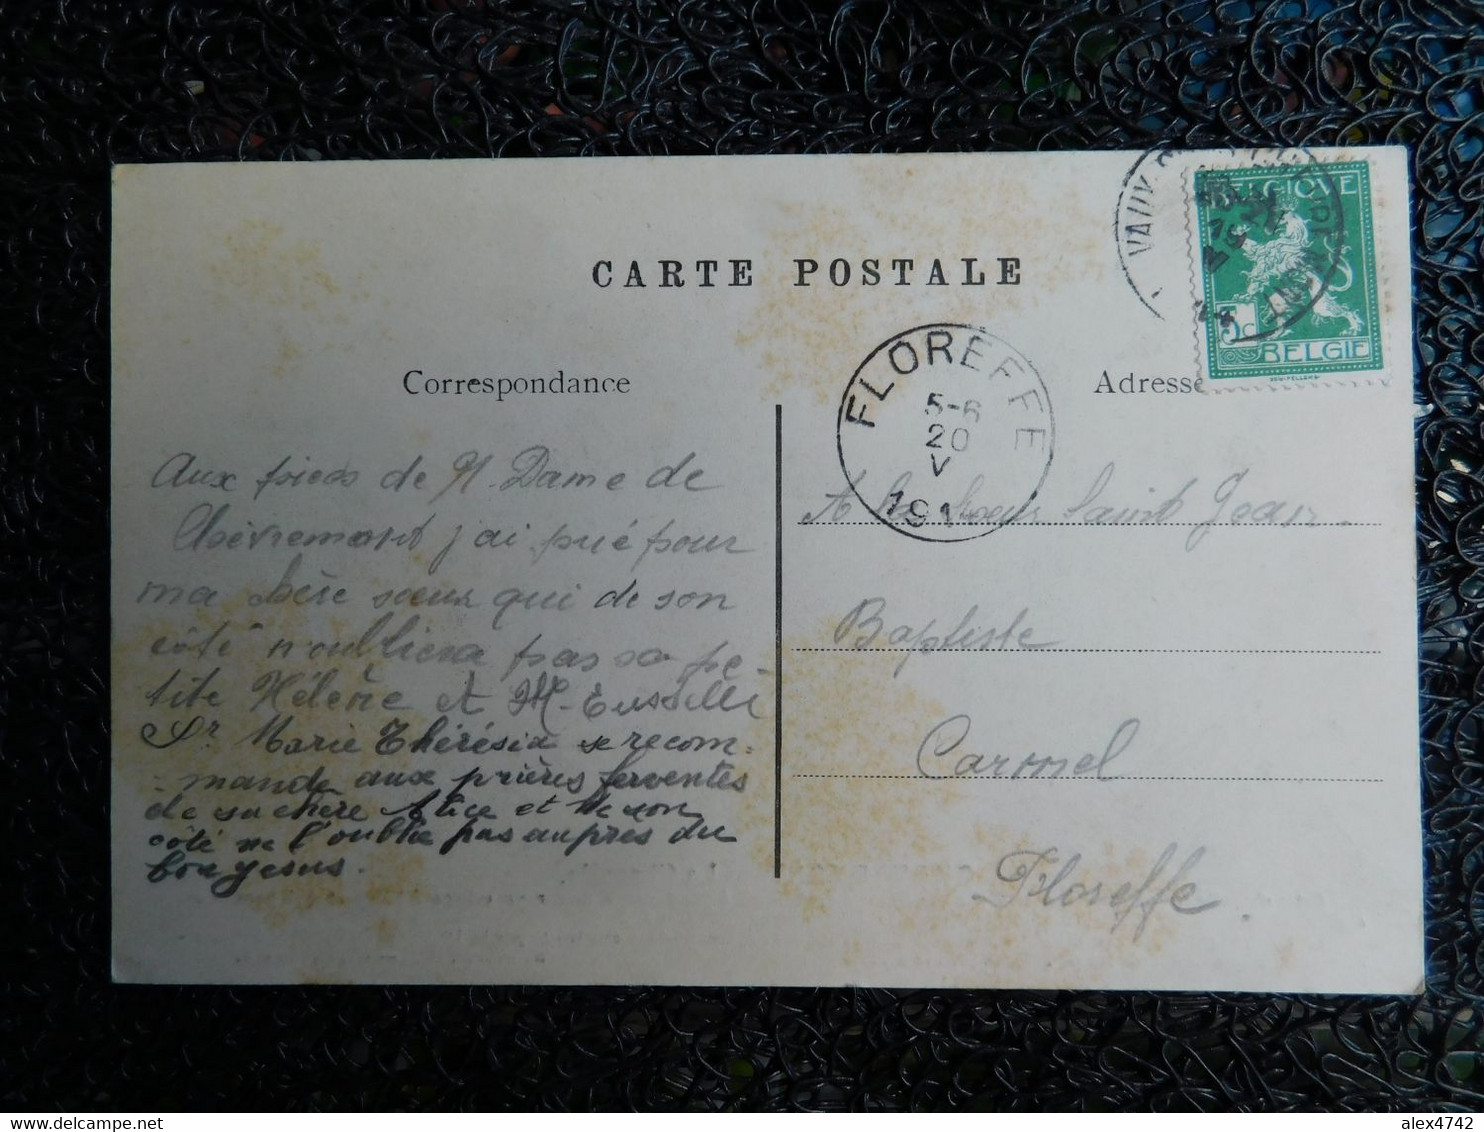 CARTE POSTALE
Correspondance
Adresse
BELGIQUE
5c
BELGIE
VAUX
FLOREFFE
5-6
20
V
191
Aux pieds de N. Dame de
Chèvremont j'ai prié pour
ma chère sœur qui de son
côté n'oubliera pas sa pe-
tite Hélène et M-
Sr Marie Thérésia se recom-
mande aux prières ferventes
de sa chère Alice et de son
côté ne l'oublie pas auprès du
bon Jesus.
A la Sœur Saint Jean
Baptiste
Carmel
Floreffe.
alex4742